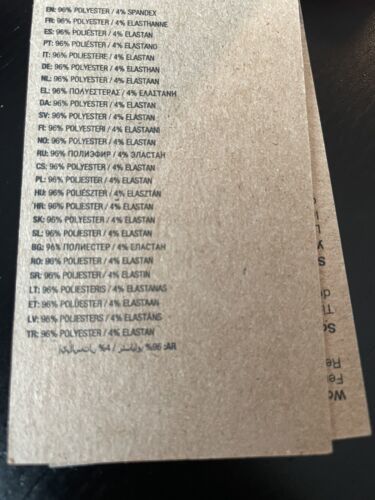 EN: 96% POLYESTER / 4% SPANDEX
FR: 96% POLYESTER / 4% ELASTHANNE
ES: 96% POLIÉSTER / 4% ELASTAN
PT: 96% POLIÉSTER / 4% ELASTANO
IT: 96% POLIESTERE / 4% ELASTAN
DE: 96% POLYESTER / 4% ELASTHAN
NL: 96% POLYESTER / 4% ELASTAAN
EL: 96% ΠΟΛΥΕΣΤΕΡΑΣ / 4% ΕΛΑΣΤΑΝΗ
DA: 96% POLYESTER / 4% ELASTAN
SV: 96% POLYESTER / 4% ELASTAN
FI: 96% POLYESTERI / 4% ELASTAANI
NO: 96% POLYESTER / 4% ELASTAN
RU: 96% ПОЛИЭФИР / 4% ЭЛАСТАН
CS: 96% POLYESTER / 4% ELASTAN
PL: 96% POLIESTER / 4% ELASTAN
HU: 96% POLIÉSZTER / 4% ELASZTÁN
HR: 96% POLIESTER / 4% ELASTAN
SK: 96% POLYESTER / 4% ELASTAN
SL: 96% POLIESTER / 4% ELASTAN
BG: 96% ПОЛИЕСТЕР / 4% ЕЛАСТАН
RO: 96% POLIESTER / 4% ELASTAN
SR: 96% POLIESTER / 4% ELASTIN
LT: 96% POLIESTERIS / 4% ELASTANAS
ET: 96% POLÜESTER / 4% ELASTAAN
LV: 96% POLIESTERS / 4% ELASTĀNS
TR: 96% POLYESTER / 4% ELASTAN
AR: 96% / 4%